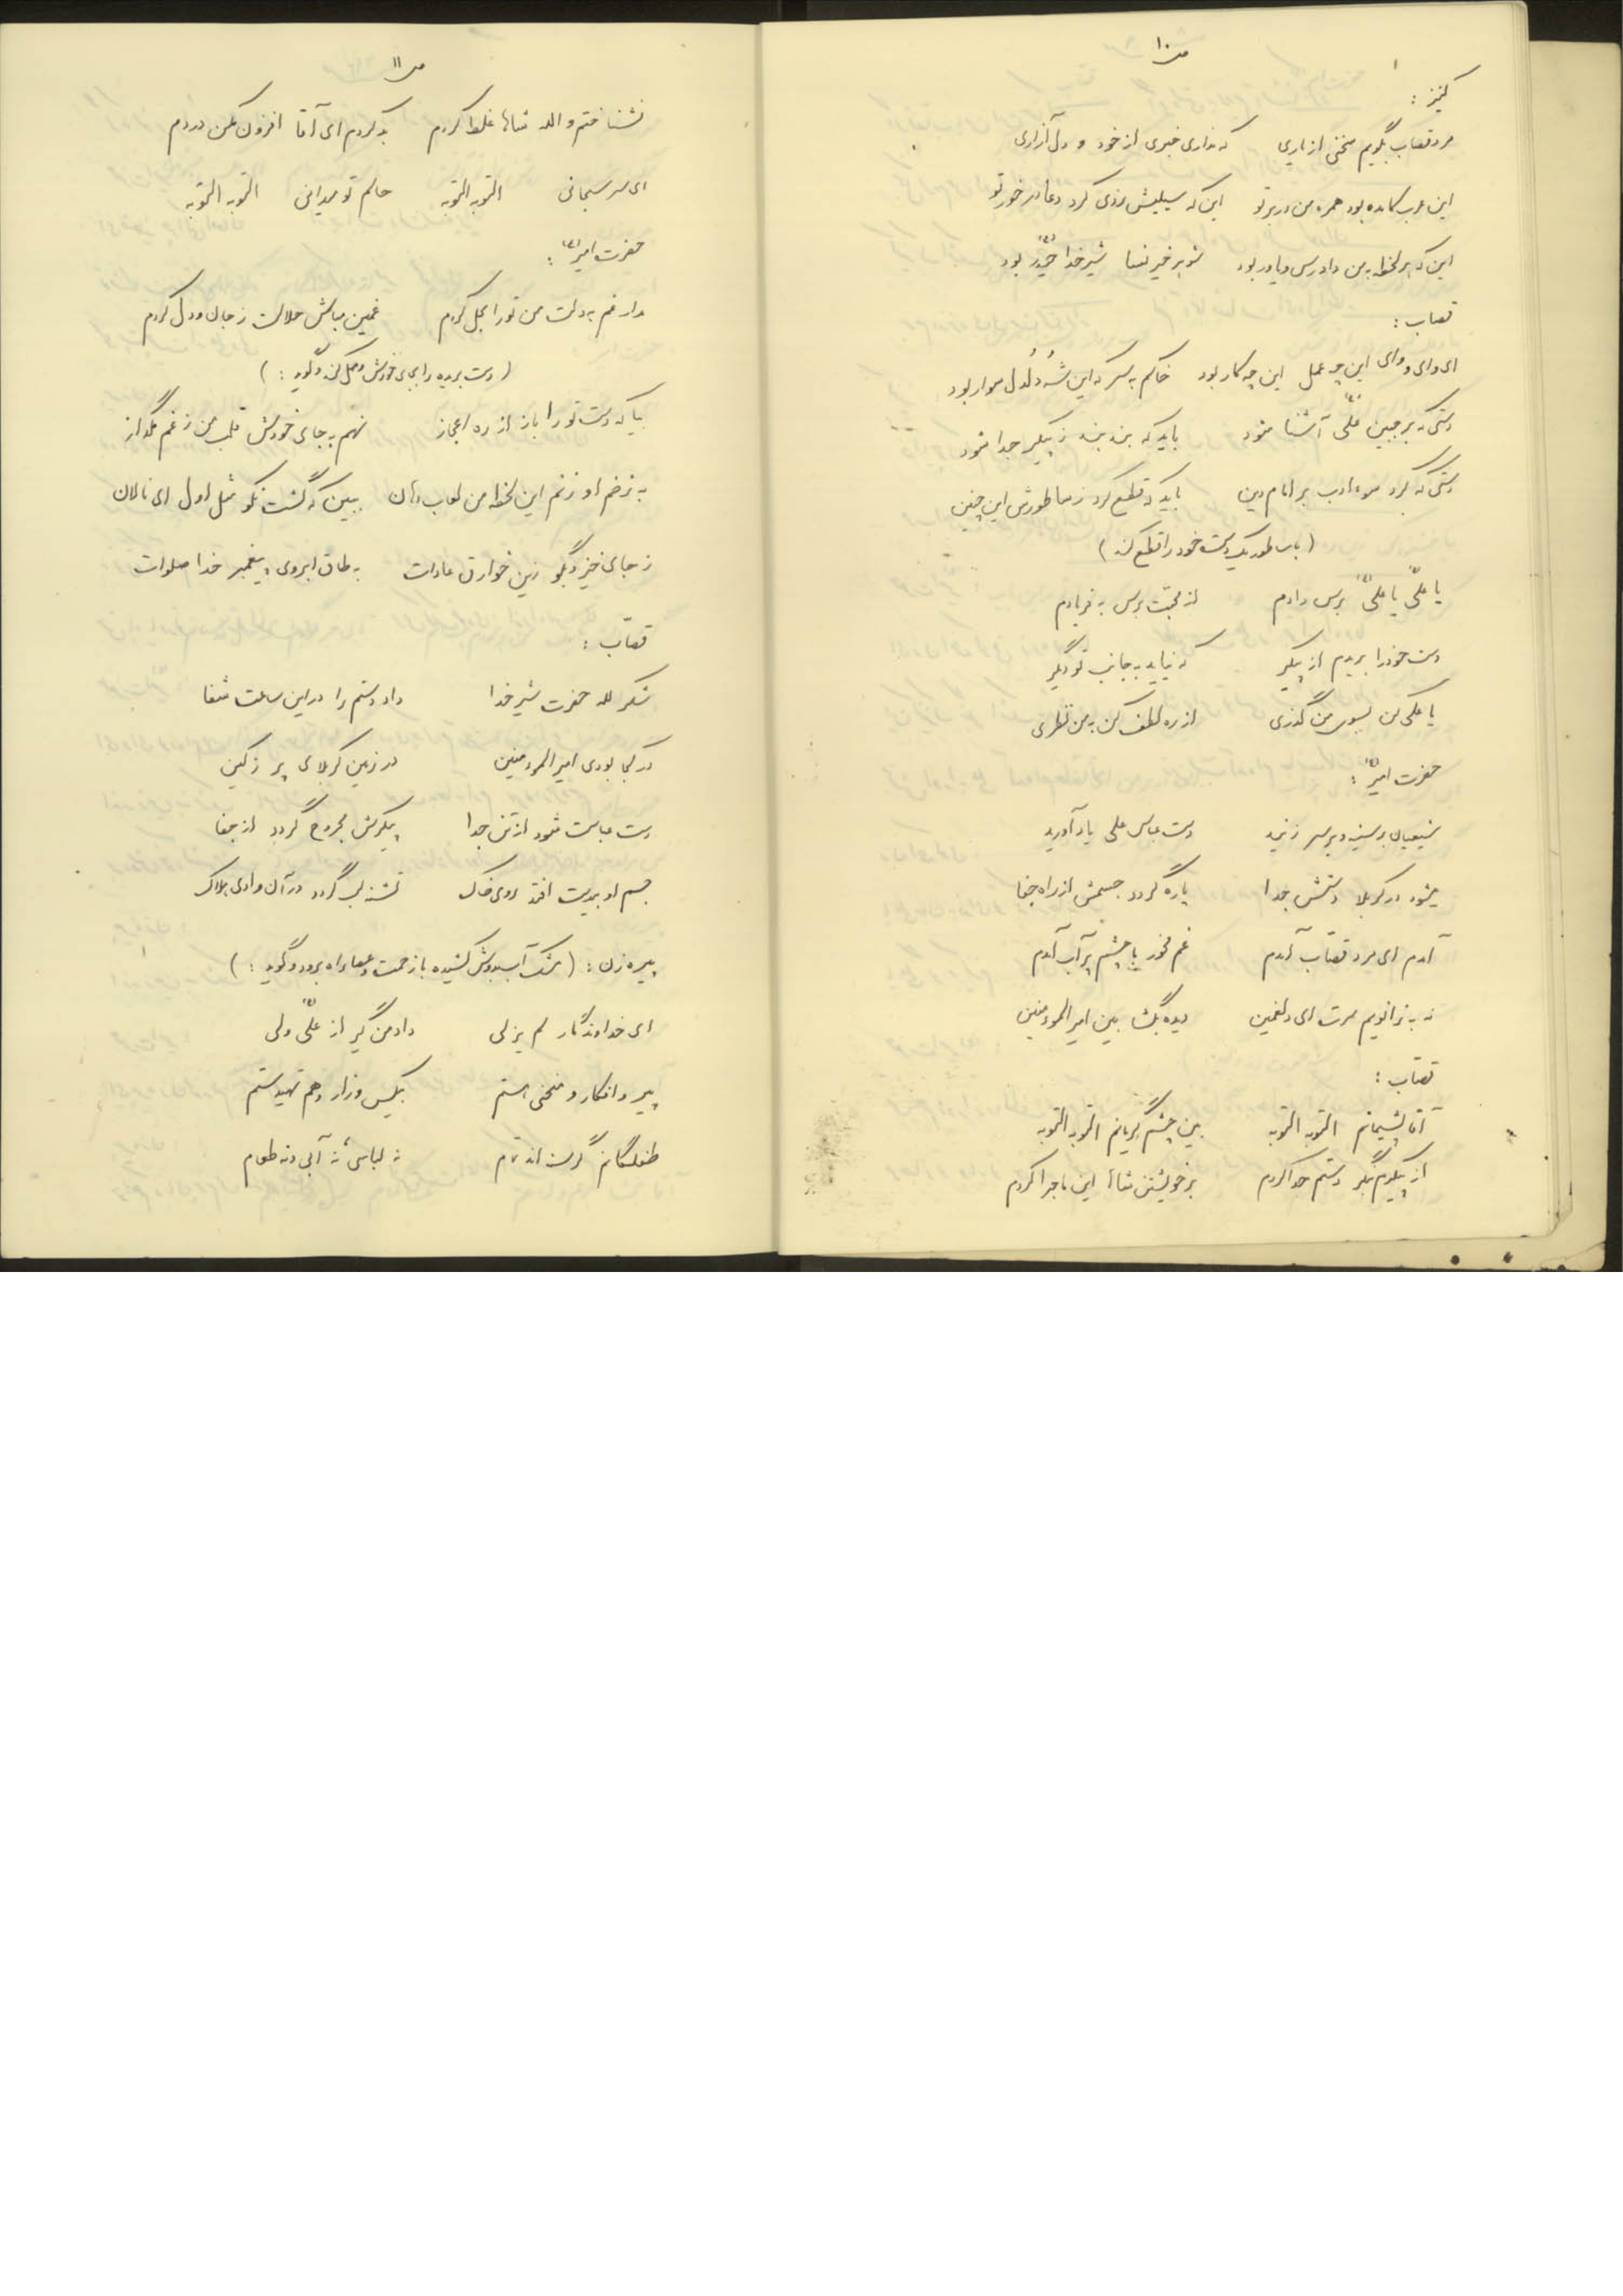 ص ۱۰
کنیز :
مرد قصاب بگویم سخنی از یاری که نداری خبری از خود و دل آزاری
این عرب کامده بود همره من در بر تو این که سیلیش زدی کرد دعا در خور تو
این که هر لحظه به من دادرس و یاور بود شوهر خیر نسا شیر خدا حیدر (ع) بود
قصاب :
ای وای و وای این چه عمل این چه کار بود خاکم به سر که این شه دُلدُل سوار بود
دستی که بر جبین علی (ع) آشنا شود باید که بند بند ز پیکر جدا شود
دستی که کرد سوء ادب بر امام دین باید که قطع کرد ز ساطورش این چنین
(با ساطور یک دست خود را قطع کند)
یا علی یا علی (ع) برس دادم از محبت برس به فریادم
دست خود را بریدم از پیکر که نیاید به جانب تو دگر
یا علی کن بسوی من گذری از ره لطف کن به من نظری
حضرت امیر (ع) :
شیعیان بر سینه و بر سر زنید دست عباس علی یاد آورید
میشود در کربلا دستش جدا پاره گردد جسمش از راه جفا
آمدم ای مرد قصاب آمدم غم مخور با چشم پر آب آمدم
نه به زانویم سرت ای دلغمین دیده بگشا بین امیرالمومنین
قصاب :
آقا پشیمانم التوبه التوبه بین چشم گریانم التوبه التوبه
از پیکرم بنگر دستم جدا کردم بر خویشتن شاها این ماجرا کردم
ص ۱۱
نشناختم والله شاها غلط کردم بد کردم ای آقا افزون مکن دردم
ای سر سبحانی التوبه التوبه حالم تو میدانی التوبه التوبه
حضرت امیر (ع) :
مدار غم به دلت من تو را بحل کردم غمین مباش حلالت ز جان و دل کردم
(دست بریده را بجای خودش وصل کند و گوید :)
بیا که دست تو را باز از ره اعجاز نهم به جای خودش قلب من ز غم مگداز
به زخم او زنم این لحظه من لعاب دهان ببین که گشت نکو مثل اول ای نالان
ز جای خیز و بگو زین خوارق عادات به طاق ابروی پیغمبر خدا صلوات
قصاب :
شکر لله حضرت شیر خدا داد دستم را در این ساعت شفا
در کجا بودی امیرالمومنین در زمین کربلای پر ز کین
دست عباست شود از تن جدا پیکرش مجروح گردد از جفا
جسم او بی دست افتد روی خاک تشنه لب گردد در آن وادی هلاک
پیره زن : (مشک آب بدوش کشیده با زحمت و عصا راه برود و گوید :)
ای خداوندگار لم یزلی داد من گیر از علی (ع) ولی
پیر و افکار و منحنی هستم بیکس و زار و هم تهیدستم
طفلگانم گرسنه اند تمام نه لباسی نه آبی و نه طعام